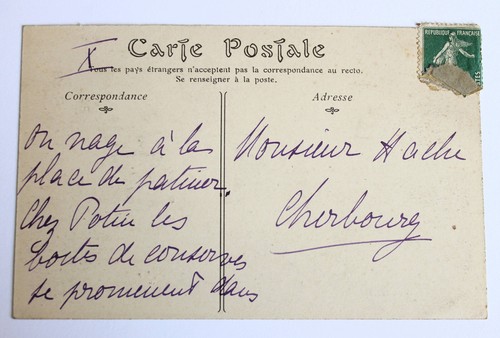 X
Carte Postale
Tous les pays étrangers n'acceptent pas la correspondance au recto.
Se renseigner à la poste.
RÉPUBLIQUE FRANÇAISE
Correspondance
Adresse
on nage à la
place de patiner.
Chez Potin les
boites de conserves
se promenent dans
Monsieur Hache
Cherbourg